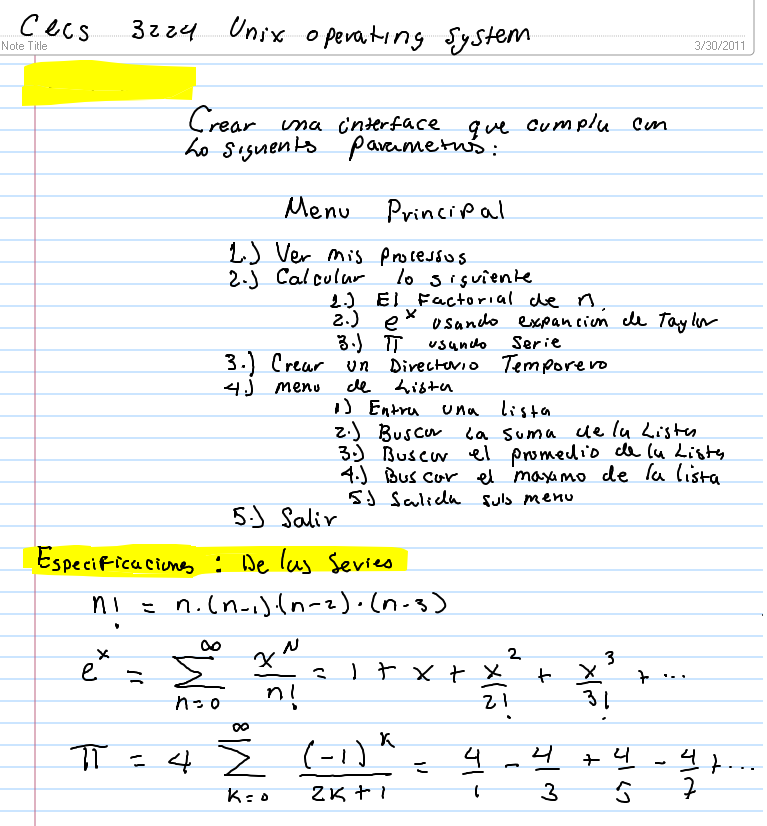 Cecs 3224 Unix operating system
Note Title 3/30/2011
Crear una interface que cumpla con
Lo siguiente parametros:
Menu Principal
1.) Ver mis processos
2.) Calcular lo siguiente
1.) El Factorial de n
2.) e^x usando expancion de Taylor
3.) π usando Serie
3.) Crear un Directorio Temporero
4.) menu de Lista
1) Entra una lista
2.) Buscar la suma de la Lista
3.) Buscar el promedio de la Lista
4.) Buscar el maximo de la lista
5.) Salida sub menu
5.) Salir
Especificaciones : De las Series
n! = n.(n-1).(n-2).(n-3)
e^x = ∑_{n=0}^{∞} x^N/n! = 1 + x + x^2/2! + x^3/3! + ...
π = 4 ∑_{k=0}^{∞} (-1)^k/2k+1 = 4/1 - 4/3 + 4/5 - 4/7 + ...